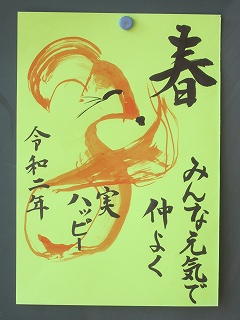 春
みんな元気で
仲よく
実
ハッピー
令和二年